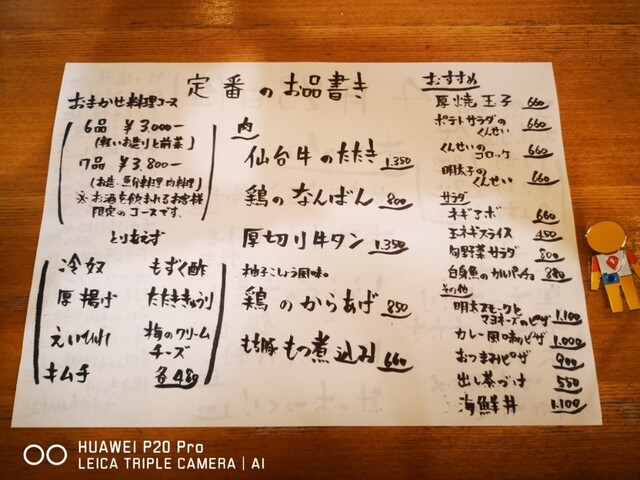 定番のお品書き
おまかせ料理コース
6品 ¥3,000ー
(軽いお造りと前菜)
7品 ¥3,800ー
(お造・魚介料理・肉料理)
※お酒を飲まれるお客様
限定のコースです。
とりあえず
冷奴 もずく酢
厚揚げ たたききゅうり
えいひれ 梅のクリーム
チーズ
キムチ 各480
肉
仙台牛のたたき 1,350
鶏のなんばん 800
厚切り牛タン 1,350
柚子こしょう風味。
鶏のからあげ 850
もち豚もつ煮込み 660
おすすめ
厚焼玉子 660
ポテトサラダの
くんせい 660
くんせいの
コロッケ 660
明太子の
くんせい 660
サラダ
ネギアボ 660
玉ネギスライス 450
旬野菜サラダ 800
白身魚のカルパッチョ
その他
明太スモークと
マヨネーズのピザ 1,100
カレー風味のピザ 1,000
おつまみピザ 900
出し茶づけ 550
海鮮丼 1,100
HUAWEI P20 Pro
LEICA TRIPLE CAMERA | AI